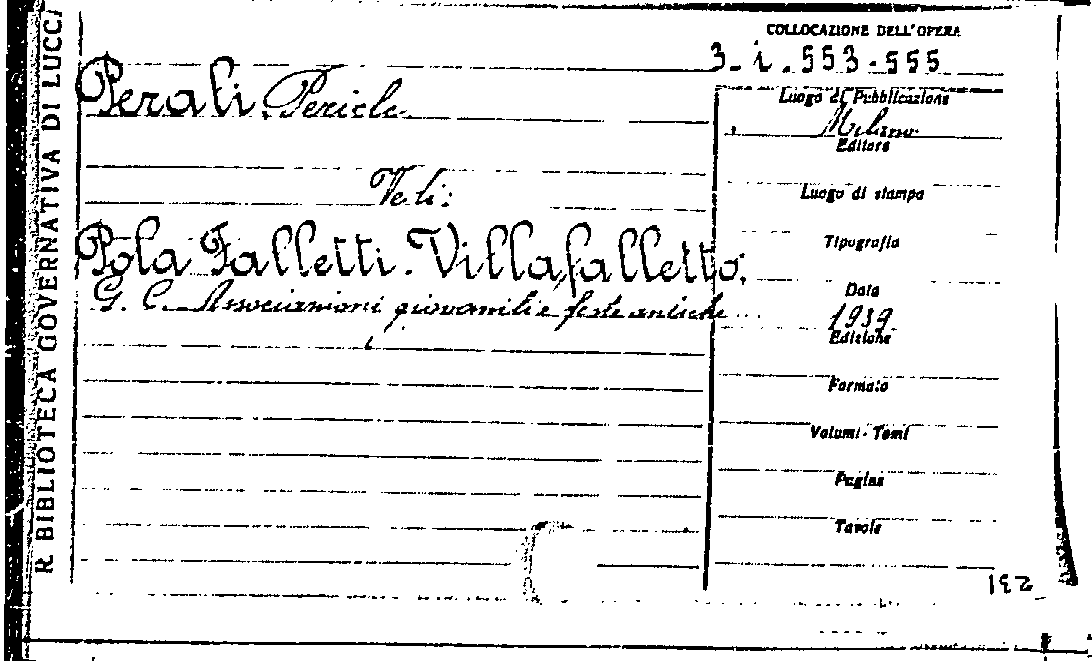 R. BIBLIOTECA GOVERNATIVA DI LUCCA
COLLOCAZIONE DELL'OPERA
3. i. 553-555
Perali, Pericle.
Vedi:
Pola Falletti-Villafalletto,
G. C. Associazioni giovanili e feste antiche
Luogo di Pubblicazione
Milano
Editore
Luogo di stampa
Tipografia
Data
1939
Edizione
Formato
Volumi-Tomi
Pagine
Tavole
192